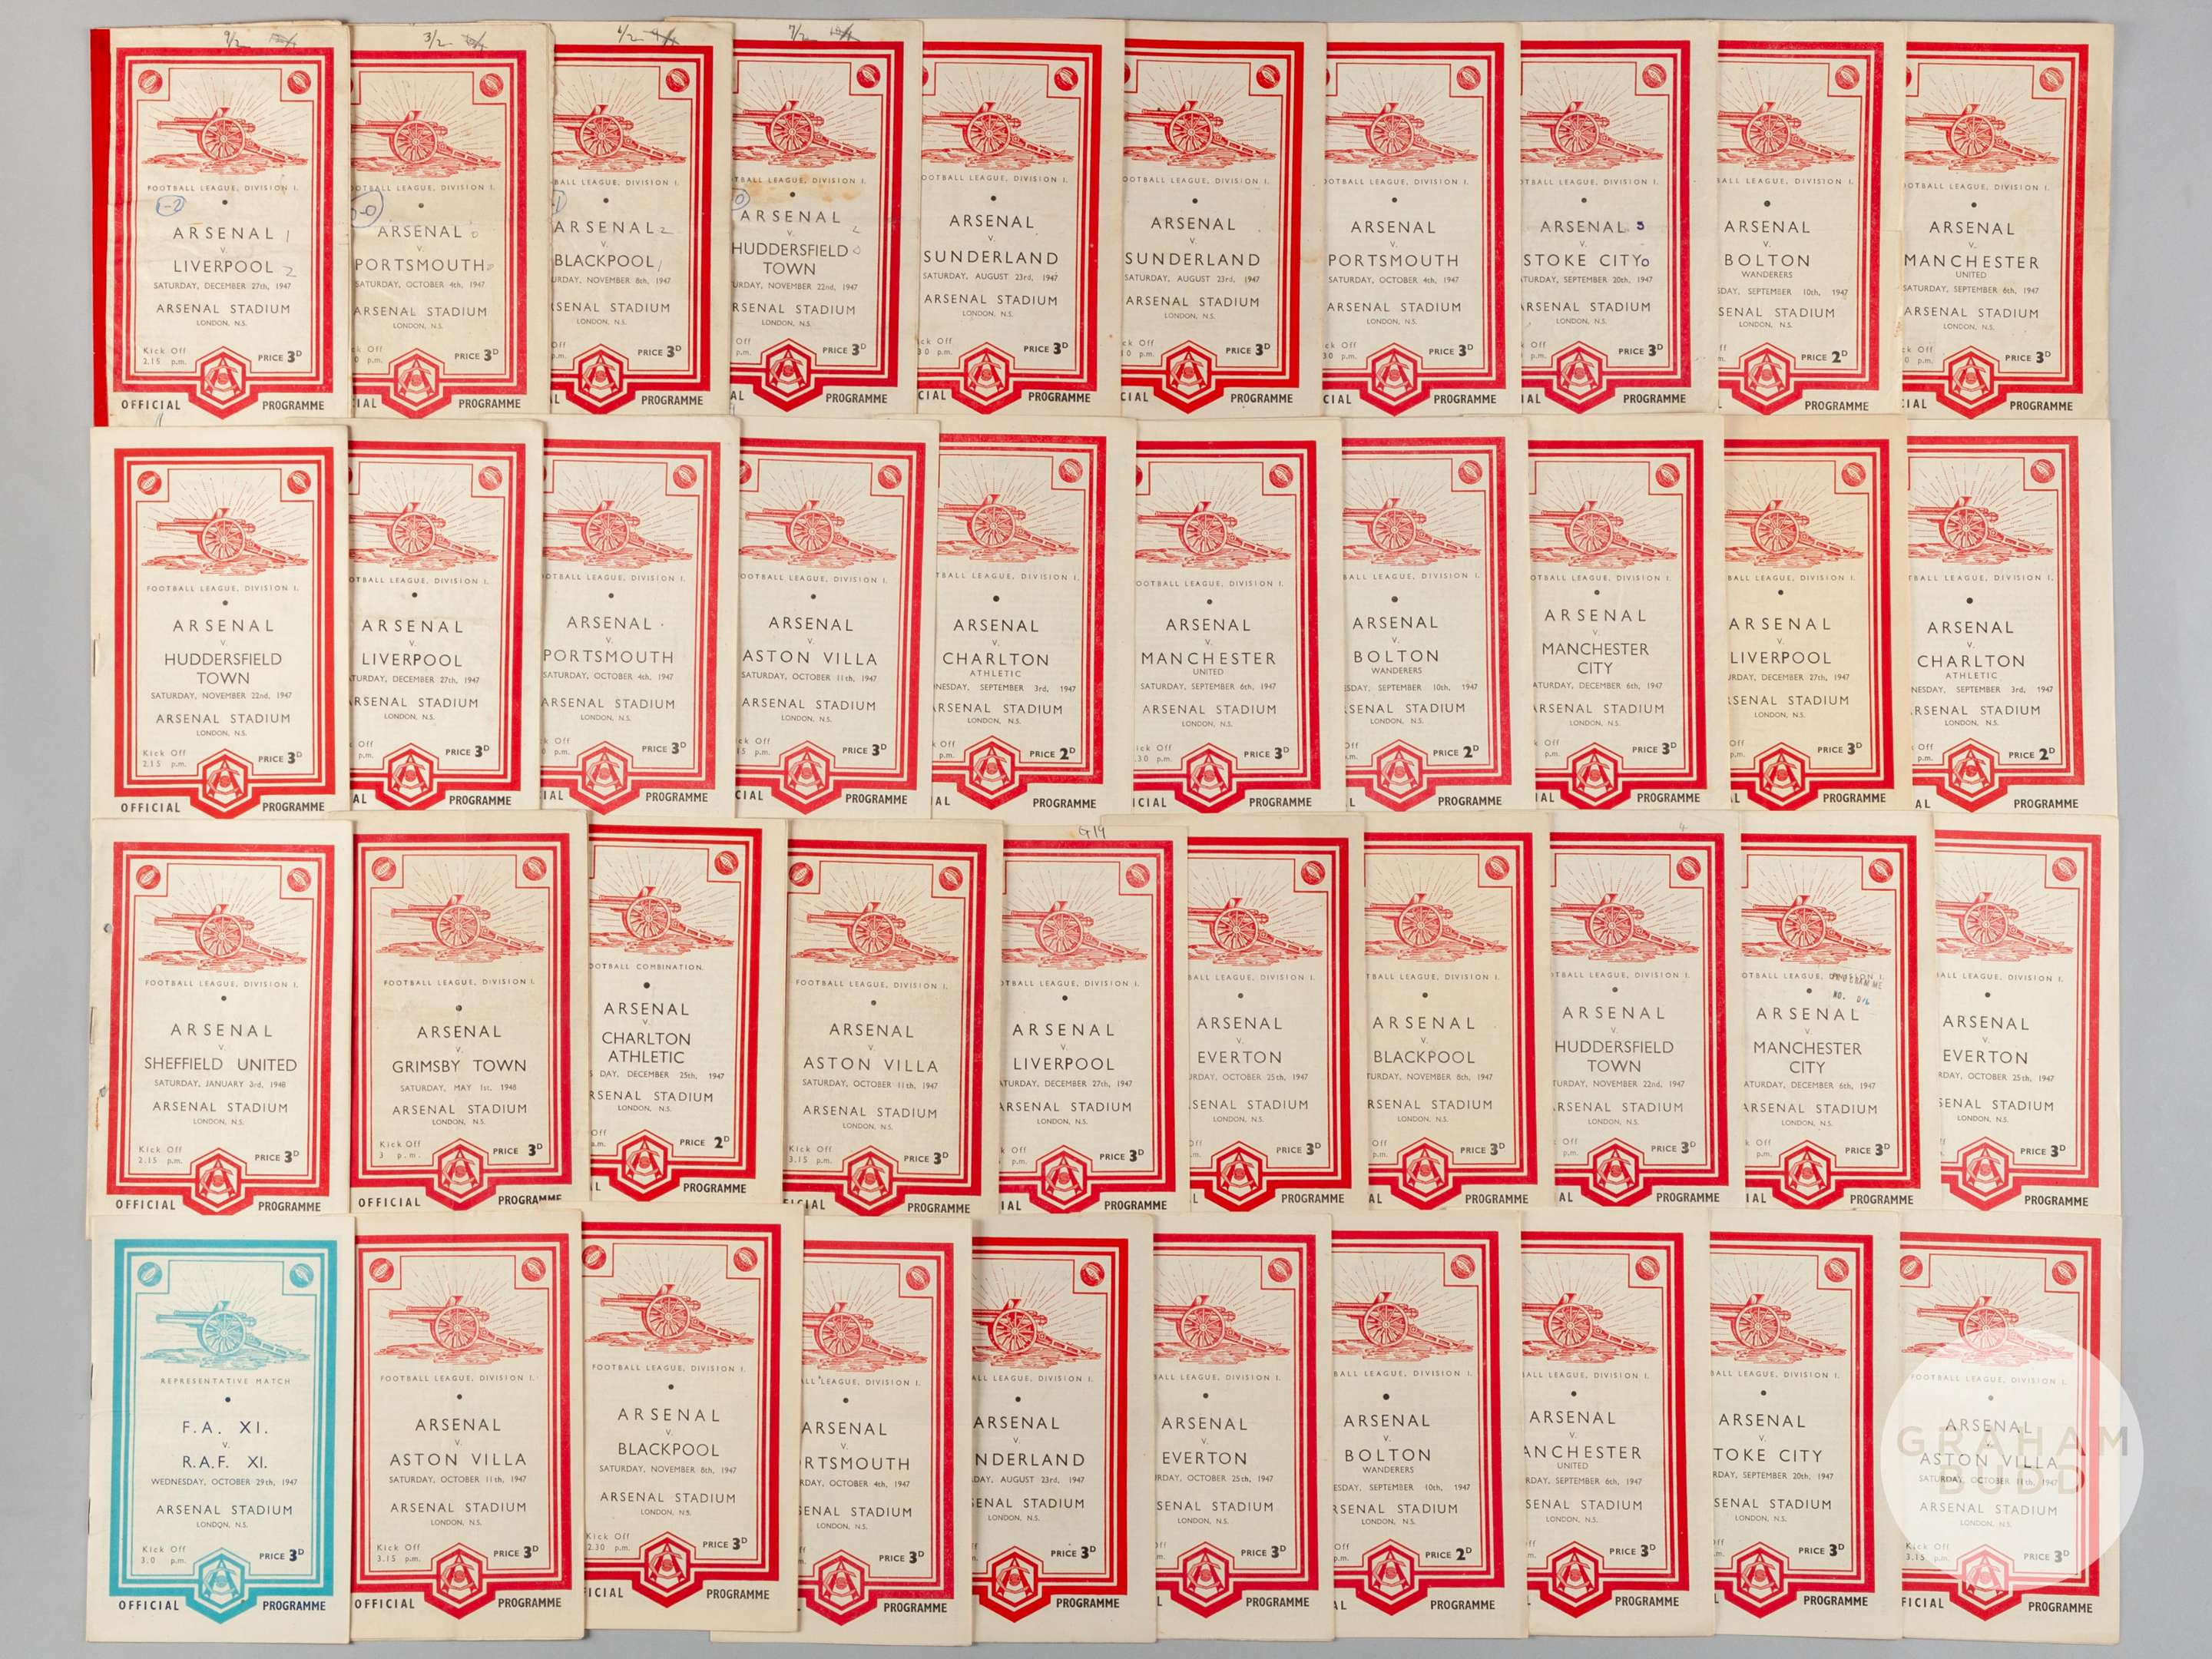 9/2
FOOTBALL LEAGUE, DIVISION I.
1-2
ARSENAL 1
v.
LIVERPOOL 2
SATURDAY, DECEMBER 27th, 1947
ARSENAL STADIUM
LONDON, N.5.
Kick Off
2.15 p.m.
PRICE 3D
OFFICIAL PROGRAMME
3/2
OTBALL LEAGUE, DIVISION I.
0-0
ARSENAL 0
v.
PORTSMOUTH 0
SATURDAY, OCTOBER 4th, 1947
ARSENAL STADIUM
LONDON, N.5.
ck Off
0 p.m.
PRICE 3D
IAL PROGRAMME
6/2
BALL LEAGUE, DIVISION I.
ARSENAL 2
v.
BLACKPOOL 1
URDAY, NOVEMBER 8th, 1947
SENAL STADIUM
LONDON, N.5.
Off
p.m.
PRICE 3D
L PROGRAMME
7/2
TBALL LEAGUE, DIVISION I.
ARSENAL 2
v.
HUDDERSFIELD 0
TOWN
URDAY, NOVEMBER 22nd, 1947
RSENAL STADIUM
LONDON, N.5.
Off
p.m.
PRICE 3D
AL PROGRAMME
OOTBALL LEAGUE, DIVISION I.
ARSENAL
v.
SUNDERLAND
SATURDAY, AUGUST 23rd, 1947
ARSENAL STADIUM
LONDON, N.5.
ck Off
3 0 p.m.
PRICE 3D
CIAL PROGRAMME
OOTBALL LEAGUE, DIVISION I.
ARSENAL
v.
SUNDERLAND
SATURDAY, AUGUST 23rd, 1947
ARSENAL STADIUM
LONDON, N.5.
ck Off
0 p.m.
PRICE 3D
CIAL PROGRAMME
OOTBALL LEAGUE, DIVISION I.
ARSENAL
v.
PORTSMOUTH
SATURDAY, OCTOBER 4th, 1947
ARSENAL STADIUM
LONDON, N.5.
ck Off
30 p.m.
PRICE 3D
CIAL PROGRAMME
TBALL LEAGUE, DIVISION I.
ARSENAL 3
v.
STOKE CITY 0
TURDAY, SEPTEMBER 20th, 1947
ARSENAL STADIUM
LONDON, N.5.
k Off
p.m.
PRICE 3D
IAL PROGRAMME
ALL LEAGUE, DIVISION I.
ARSENAL
v.
BOLTON
WANDERERS
SDAY, SEPTEMBER 10th, 1947
SENAL STADIUM
LONDON, N.5.
PRICE 2D
L PROGRAMME
OTBALL LEAGUE, DIVISION I.
ARSENAL
v.
MANCHESTER
UNITED
SATURDAY, SEPTEMBER 6th, 1947
ARSENAL STADIUM
LONDON, N.5.
k Off
0 p.m.
PRICE 3D
CIAL PROGRAMME
FOOTBALL LEAGUE, DIVISION I.
ARSENAL
v.
HUDDERSFIELD
TOWN
SATURDAY, NOVEMBER 22nd, 1947
ARSENAL STADIUM
LONDON, N.5.
Kick Off
2.15 p.m.
PRICE 3D
OFFICIAL PROGRAMME
OTBALL LEAGUE, DIVISION I.
ARSENAL
v.
LIVERPOOL
TURDAY, DECEMBER 27th, 1947
RSENAL STADIUM
LONDON, N.5.
Off
p.m.
PRICE 3D
AL PROGRAMME
OOTBALL LEAGUE, DIVISION I.
ARSENAL
v.
PORTSMOUTH
SATURDAY, OCTOBER 4th, 1947
ARSENAL STADIUM
LONDON, N.5.
k Off
0 p.m.
PRICE 3D
IAL PROGRAMME
OOTBALL LEAGUE, DIVISION I.
ARSENAL
v.
ASTON VILLA
SATURDAY, OCTOBER 11th, 1947
ARSENAL STADIUM
LONDON, N.5.
ck Off
5 p.m.
PRICE 3D
CIAL PROGRAMME
TBALL LEAGUE, DIVISION I.
ARSENAL
v.
CHARLTON
ATHLETIC
NESDAY, SEPTEMBER 3rd, 1947
RSENAL STADIUM
LONDON, N.5.
k Off
p.m.
PRICE 2D
AL PROGRAMME
OOTBALL LEAGUE, DIVISION I.
ARSENAL
v.
MANCHESTER
UNITED
SATURDAY, SEPTEMBER 6th, 1947
ARSENAL STADIUM
LONDON, N.5.
ick Off
.30 p.m.
PRICE 3D
ICIAL PROGRAMME
BALL LEAGUE, DIVISION I.
ARSENAL
v.
BOLTON
WANDERERS
SDAY, SEPTEMBER 10th, 1947
SENAL STADIUM
LONDON, N.5.
Off
p.m.
PRICE 2D
L PROGRAMME
OTBALL LEAGUE, DIVISION I.
ARSENAL
v.
MANCHESTER
CITY
ATURDAY, DECEMBER 6th, 1947
ARSENAL STADIUM
LONDON, N.5.
k Off
p.m.
PRICE 3D
IAL PROGRAMME
BALL LEAGUE, DIVISION I.
ARSENAL
v.
LIVERPOOL
URDAY, DECEMBER 27th, 1947
SENAL STADIUM
LONDON, N.5.
Off
p.m.
PRICE 3D
L PROGRAMME
TBALL LEAGUE, DIVISION I.
ARSENAL
v.
CHARLTON
ATHLETIC
NESDAY, SEPTEMBER 3rd, 1947
RSENAL STADIUM
LONDON, N.5.
Off
p.m.
PRICE 2D
AL PROGRAMME
FOOTBALL LEAGUE, DIVISION I.
ARSENAL
v.
SHEFFIELD UNITED
SATURDAY, JANUARY 3rd, 1948
ARSENAL STADIUM
LONDON, N.5.
Kick Off
2.15 p.m.
PRICE 3D
OFFICIAL PROGRAMME
FOOTBALL LEAGUE, DIVISION I.
ARSENAL
v.
GRIMSBY TOWN
SATURDAY, MAY 1st, 1948
ARSENAL STADIUM
LONDON, N.5.
Kick Off
3 p.m.
PRICE 3D
OFFICIAL PROGRAMME
OOTBALL COMBINATION.
ARSENAL
v.
CHARLTON
ATHLETIC
S DAY, DECEMBER 25th, 1947
RSENAL STADIUM
LONDON, N.5.
Off
a.m.
PRICE 2D
L PROGRAMME
FOOTBALL LEAGUE, DIVISION I.
ARSENAL
v.
ASTON VILLA
SATURDAY, OCTOBER 11th, 1947
ARSENAL STADIUM
LONDON, N.5.
Kick Off
3.15 p.m.
PRICE 3D
ICIAL PROGRAMME
G19
OTBALL LEAGUE, DIVISION I.
ARSENAL
v.
LIVERPOOL
ATURDAY, DECEMBER 27th, 1947
ARSENAL STADIUM
LONDON, N.5.
k Off
p.m.
PRICE 3D
IAL PROGRAMME
BALL LEAGUE, DIVISION I.
ARSENAL
v.
EVERTON
URDAY, OCTOBER 25th, 1947
SENAL STADIUM
LONDON, N.5.
Off
p.m.
PRICE 3D
L PROGRAMME
TBALL LEAGUE, DIVISION I.
ARSENAL
v.
BLACKPOOL
TURDAY, NOVEMBER 8th, 1947
RSENAL STADIUM
LONDON, N.5.
Off
p.m.
PRICE 3D
AL PROGRAMME
4
OTBALL LEAGUE, DIVISION I.
ARSENAL
v.
HUDDERSFIELD
TOWN
TURDAY, NOVEMBER 22nd, 1947
RSENAL STADIUM
LONDON, N.5.
Off
p.m.
PRICE 3D
AL PROGRAMME
OTBALL LEAGUE, DIVISION I.
PROGRAMME
NO.
ARSENAL
v.
MANCHESTER
CITY
ATURDAY, DECEMBER 6th, 1947
ARSENAL STADIUM
LONDON, N.5.
k Off
p.m.
PRICE 3D
IAL PROGRAMME
ALL LEAGUE, DIVISION I.
ARSENAL
v.
EVERTON
RDAY, OCTOBER 25th, 1947
SENAL STADIUM
LONDON, N.5.
ff
PRICE 3D
PROGRAMME
REPRESENTATIVE MATCH
F.A. XI.
v.
R.A.F. XI.
WEDNESDAY, OCTOBER 29th, 1947
ARSENAL STADIUM
LONDON, N.5.
Kick Off
3.0 p.m.
PRICE 3D
OFFICIAL PROGRAMME
FOOTBALL LEAGUE, DIVISION I.
ARSENAL
v.
ASTON VILLA
SATURDAY, OCTOBER 11th, 1947
ARSENAL STADIUM
LONDON, N.5.
Kick Off
3.15 p.m.
PRICE 3D
OFFICIAL PROGRAMME
FOOTBALL LEAGUE, DIVISION I.
ARSENAL
v.
BLACKPOOL
SATURDAY, NOVEMBER 8th, 1947
ARSENAL STADIUM
LONDON, N.5.
Kick Off
2.30 p.m.
PRICE 3D
ICIAL PROGRAMME
LL LEAGUE, DIVISION I.
ARSENAL
v.
RTSMOUTH
RDAY, OCTOBER 4th, 1947
SENAL STADIUM
LONDON, N.5.
ff
PRICE 3D
PROGRAMME
ALL LEAGUE, DIVISION I.
ARSENAL
v.
NDERLAND
DAY, AUGUST 23rd, 1947
ENAL STADIUM
LONDON, N.5.
PRICE 3D
PROGRAMME
ALL LEAGUE, DIVISION I.
ARSENAL
v.
EVERTON
RDAY, OCTOBER 25th, 1947
SENAL STADIUM
LONDON, N.5.
ff
m.
PRICE 3D
L PROGRAMME
BALL LEAGUE, DIVISION I.
ARSENAL
v.
BOLTON
WANDERERS
ESDAY, SEPTEMBER 10th, 1947
RSENAL STADIUM
LONDON, N.5.
Off
p.m.
PRICE 2D
AL PROGRAMME
ALL LEAGUE, DIVISION I.
ARSENAL
v.
ANCHESTER
UNITED
RDAY, SEPTEMBER 6th, 1947
SENAL STADIUM
LONDON, N.5.
ff
m.
PRICE 3D
PROGRAMME
BALL LEAGUE, DIVISION I.
ARSENAL
v.
TOKE CITY
RDAY, SEPTEMBER 20th, 1947
SENAL STADIUM
LONDON, N.5.
ff
m.
PRICE 3D
PROGRAMME
FOOTBALL LEAGUE, DIVISION I.
ARSENAL
v.
ASTON VILLA
SATURDAY, OCTOBER 11th, 1947
ARSENAL STADIUM
LONDON, N.5.
Kick Off
3.15 p.m.
PRICE 3D
FICIAL PROGRAMME
GRAHAM
BUDD